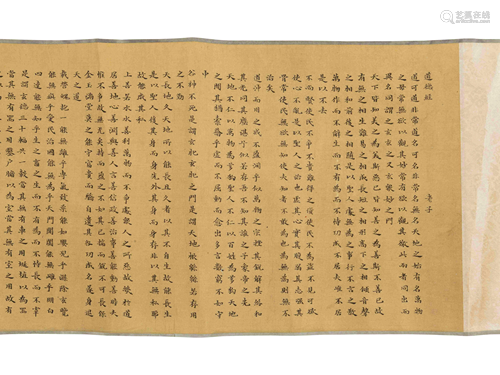 艺狐在线
道德經 老子
道可道非常道名可名非常名無名天地之始有名萬物
之母常無欲以觀其妙常有欲以觀其徼此兩者同出而
異名同謂之玄玄之又玄衆妙之門
天下皆知美之為美斯惡已皆知善之為善斯不善已故
有無之相生難易之相成長短之相形高下之相傾音聲
之相和前後之相隨是以聖人處無為之事行不言之教
萬物作而不辭生而不有為而不恃功成不居夫惟不居
是以不去
不尚賢使民不爭不貴難得之貨使民不為盜不見可欲
使心不亂是以聖人之治也虛其心實其腹弱其志強其
骨常使民無知無欲使夫知者不敢為也為無為則無不
治矣
道沖而用之或不盈淵乎似萬物之宗挫其銳解其紛和
其光同其塵湛兮似若存吾不知其誰之子象帝之先
天地不仁以萬物為芻狗聖人不仁以百姓為芻狗天地
之間其猶橐籥乎虛而不屈動而愈出多言數窮不如守
中
谷神不死是謂玄牝玄牝之門是謂天地根綿綿若存用
之不勤
天長地久天地所以能長且久者以其不自生故能長生
是以聖人後其身而身先外其身而身存非以其無私耶
故能成其私
上善若水水善利萬物而不爭處衆人之所惡故幾於道
居善地心善淵與善人言善信政善治事善能動善時夫
惟不爭故無尤持而盈之不如其已揣而銳之不可長保
金玉滿堂莫之能守富貴而驕自遺其咎功成名遂身退
天之道
載營魄抱一能無離乎專氣致柔能如嬰兒乎滌除玄覽
能無疵乎愛民治國能無為乎天門開闔能無雌乎明白
四達能無知乎生之畜之生而不有為而不恃長而不宰
是謂玄德三十輻共一轂當其無有車之用埏埴以為器
當其無有器之用鑿戶牖以為室當其無有室之用故有